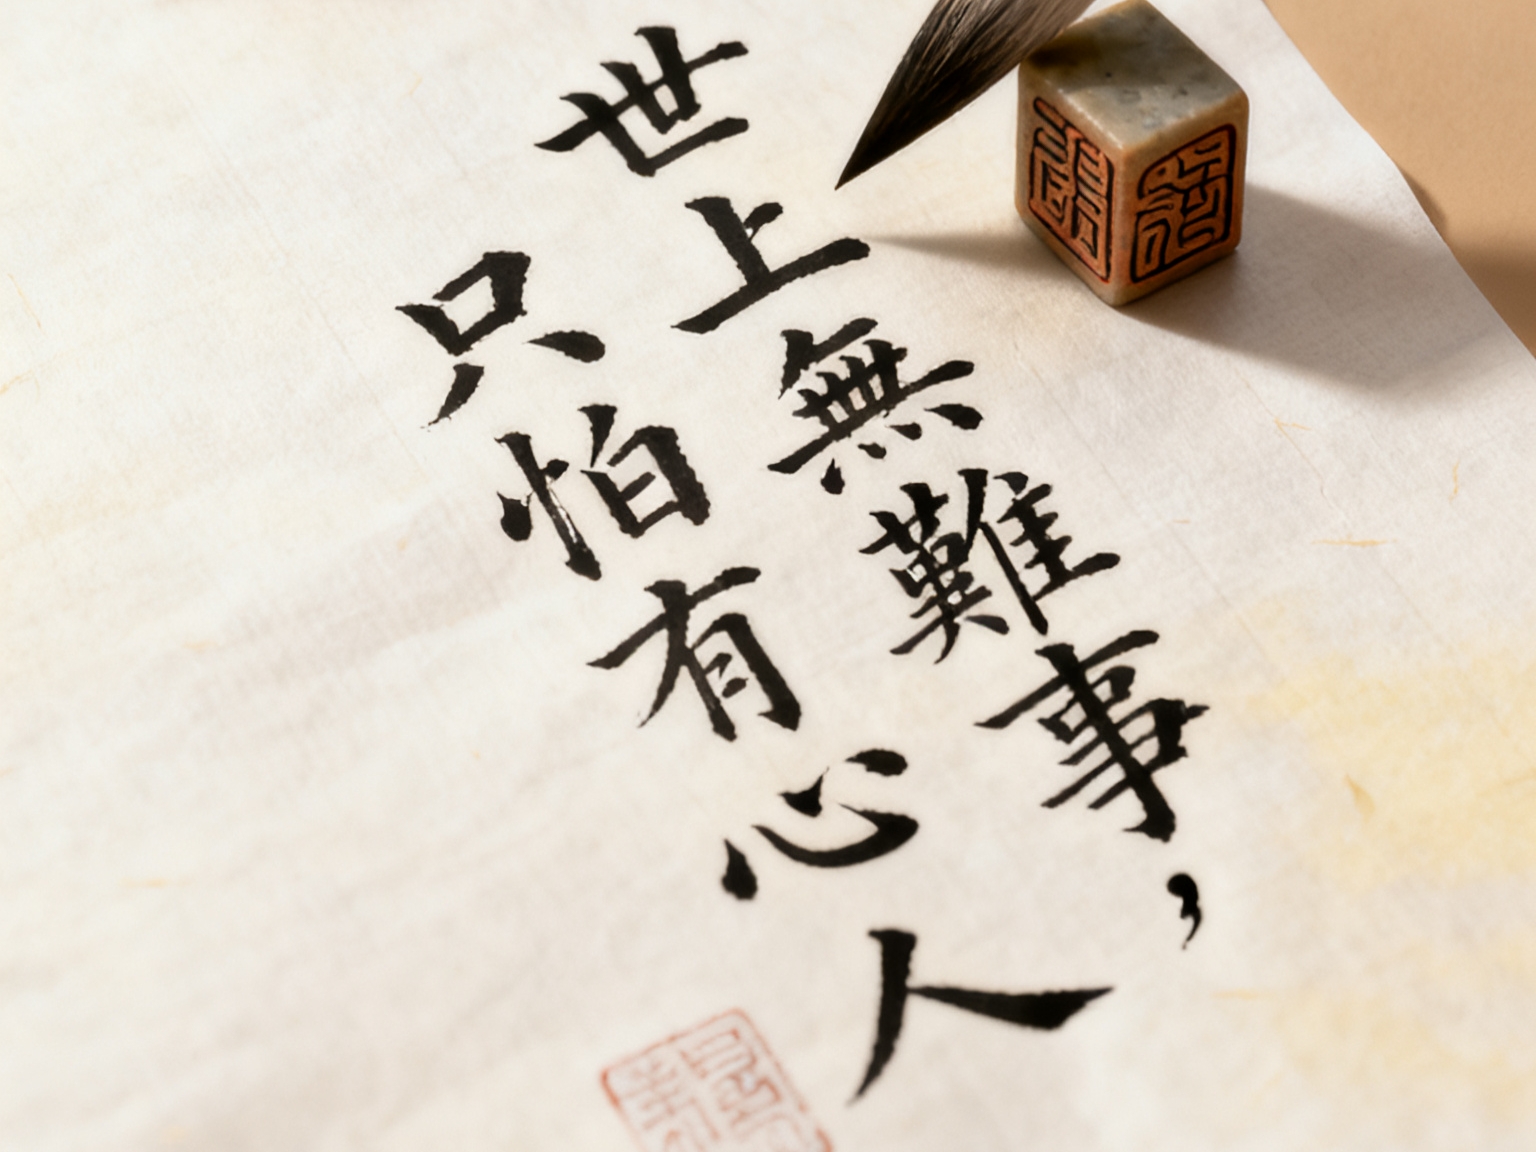 世上無難事，
只怕有心人